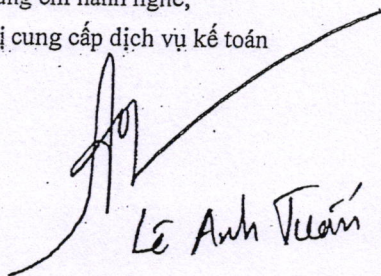 hành nghề,
cung cấp dịch vụ kế toán
Lê Anh Tuấn